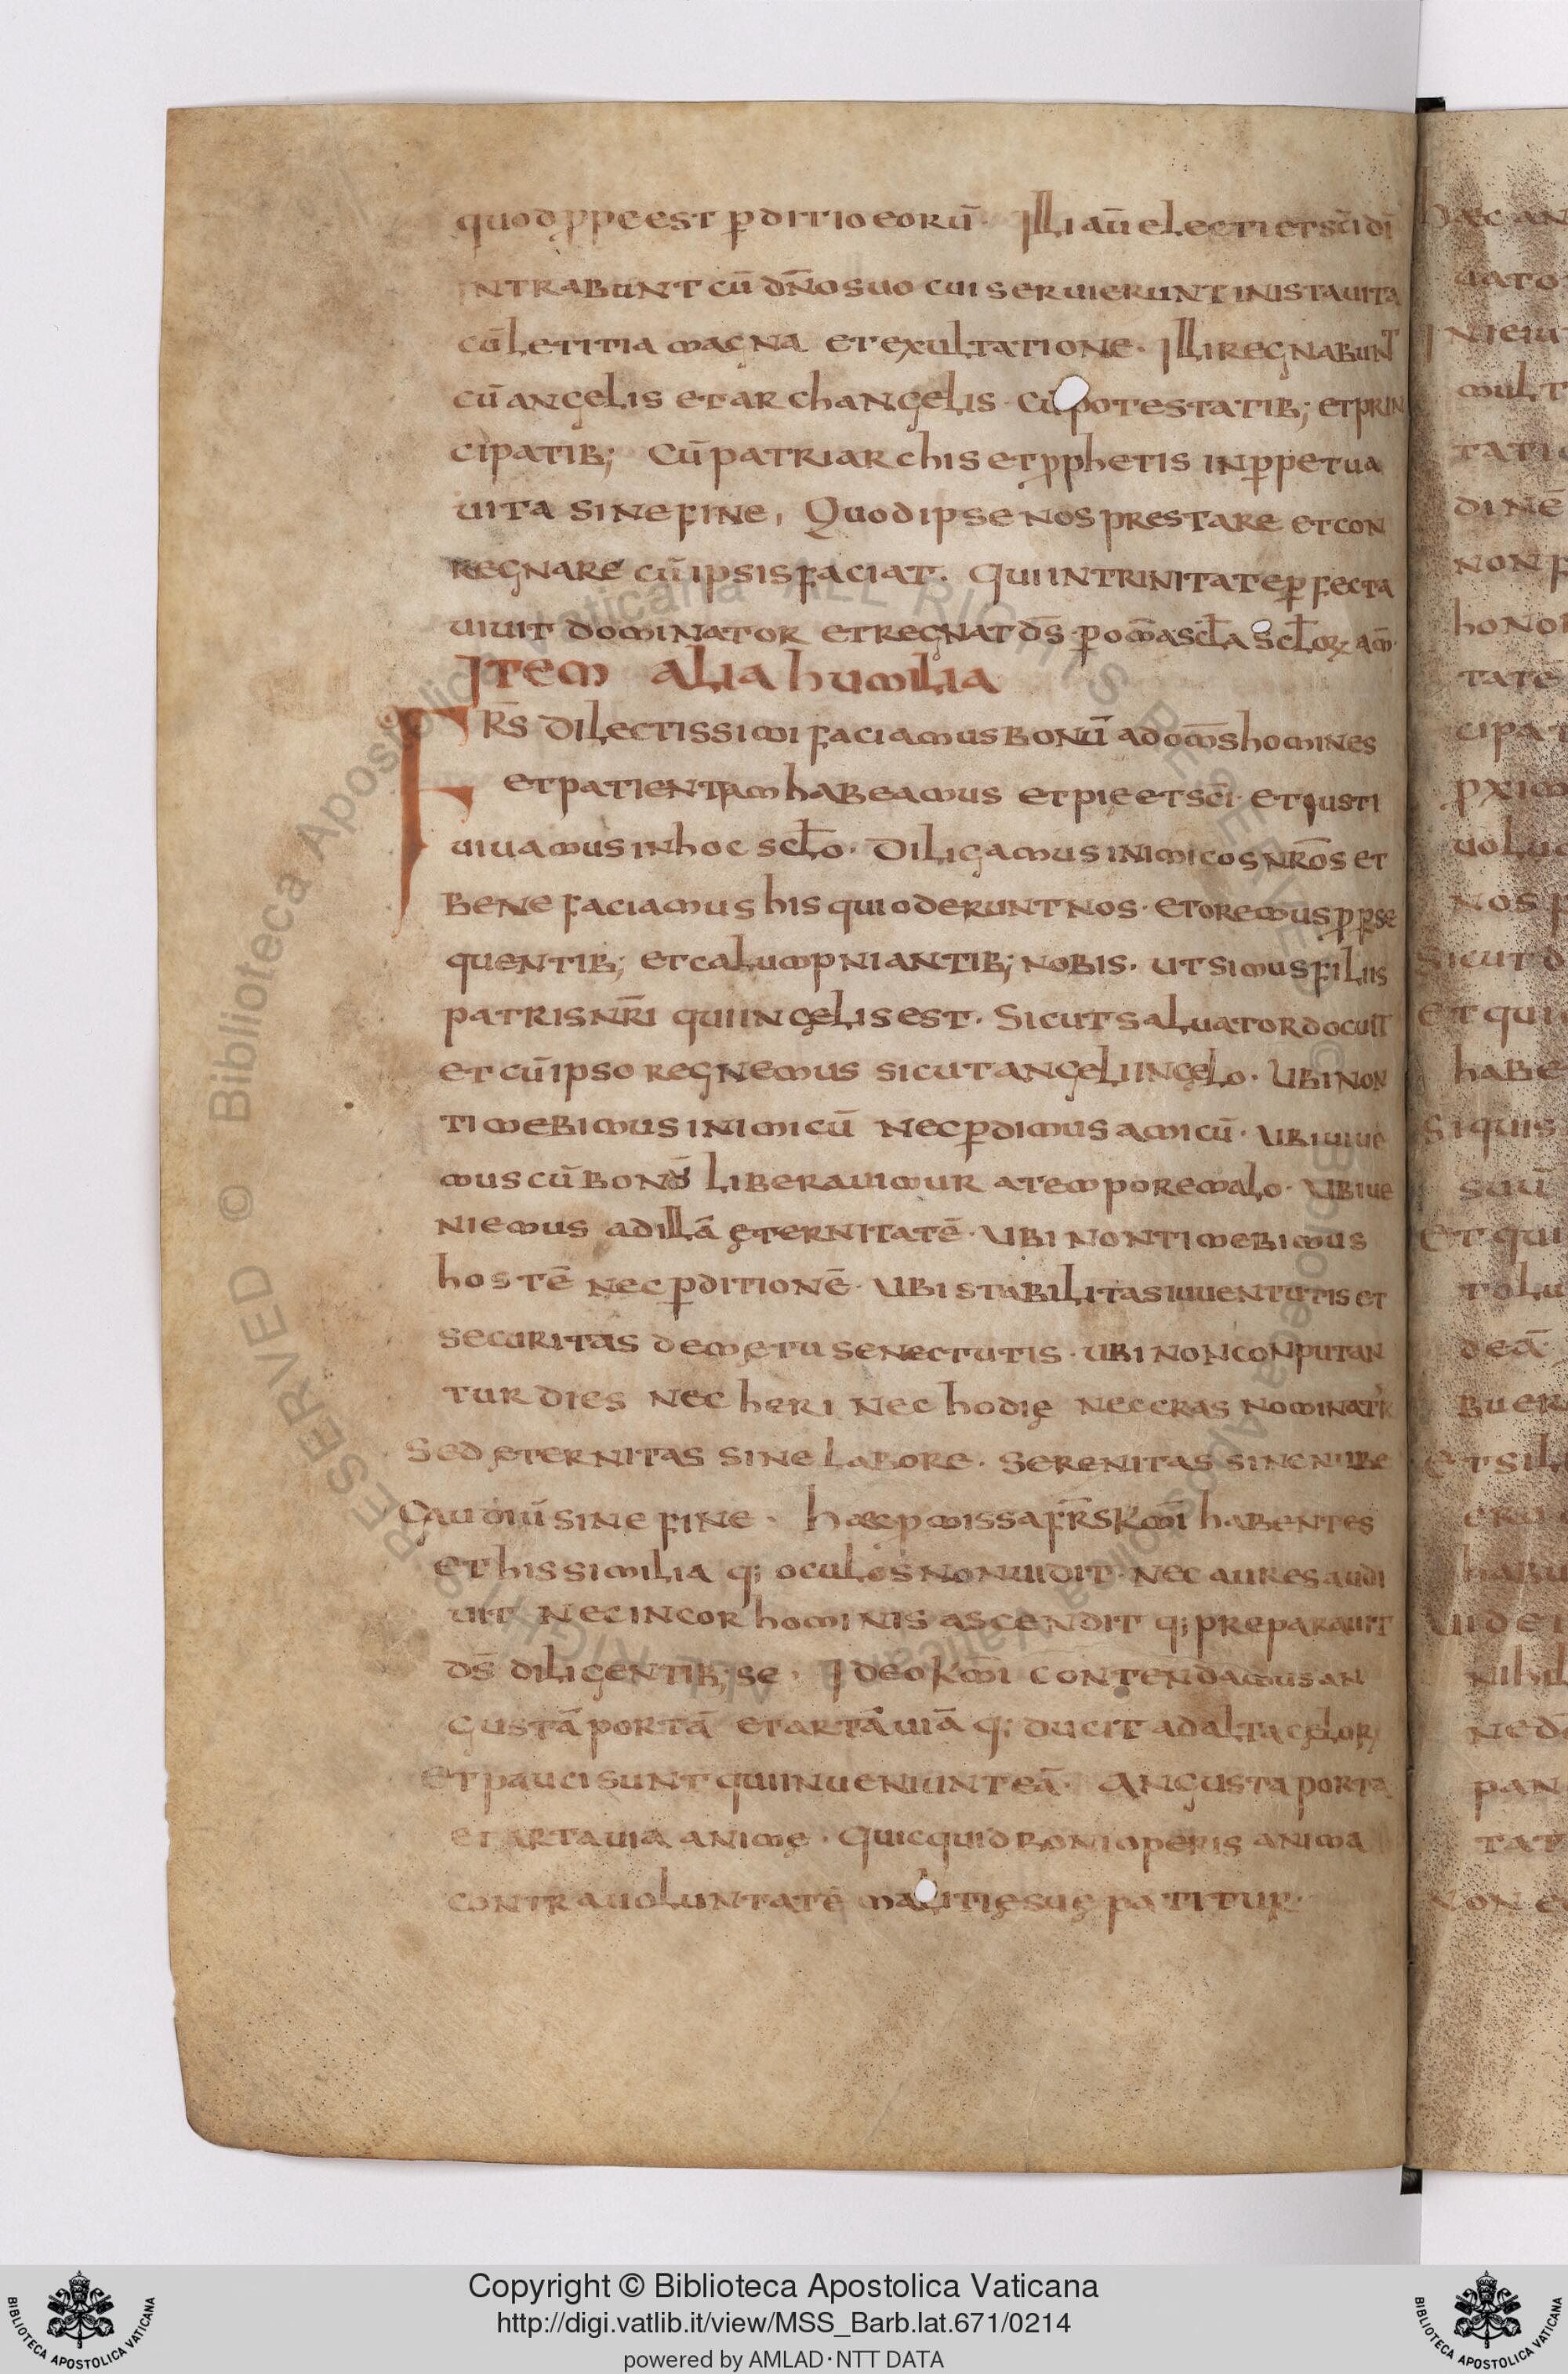 quod ꝓpe est ꝑditio eorū. Illi aū electi et sc̄i dī
intrabunt cū dn̄o suo cui seruierunt in ista uita
cū letitia magna et exultatione. Illi regnabunt
cū angelis et archangelis cū potestatib; et prin
cipatib; Cū patriarchis et ꝓphetis in ꝑpetua
uita sine fine, Quod ipse nos prestare et con
regnare cū ipsis faciat. Qui in trinitate ꝑfecta
uiuit dominator et regnat d̄s ꝑ om̄a scl̄a scl̄oꝝ am̄.
Item alia humilia
FR̄S dilectissimi faciamus bonū ad om̄s homines
et patientiam habeamus et pie et sc̄i et iusti
uiuamus in hoc scl̄o. Diligamus inimicos nr̄os et
bene faciamus his qui oderunt nos. et oremus ꝓ ꝑse
quentib; et calumpniantib; nobis. ut simus filiis
patris nr̄i qui in cęlis est. Sicut saluator docuit
et cū ipso regnemus sicut angeli in cęlo. Ubi non
timebimus inimicū nec ꝑdimus amicū. ubi uiue
mus cū bono liberauimur a tempore malo. Ubi ue
niemus ad illā ęternitatē. Ubi non timebimus
hostē nec ꝑditionē. Ubi stabilitas iuuentutis et
securitas de mętu senectutis. ubi non conputan
tur dies nec heri nec hodię nec cras nominatr
Sed ęternitas sine labore. Serenitas sine nube
Gaudiū sine fine. haec ꝓmissa fr̄s km̄i habentes
et his similia q; oculos non uidit. nec aures audi
uit nec in cor hominis ascendit q; preparauit
d̄s diligentib; se. Ideo km̄i contendamus an
gustā portā et artā uiā q; ducit ad alta cęloꝝ
et pauci sunt qui inueniunt eā. Angusta porta
et arta uia animę. Quicquid boni operis anima
contra uoluntatē malitię suę patitur.
Copyright © Biblioteca Apostolica Vaticana
http://digi.vatlib.it/view/MSS_Barb.lat.671/0214
powered by AMLAD·NTT DATA